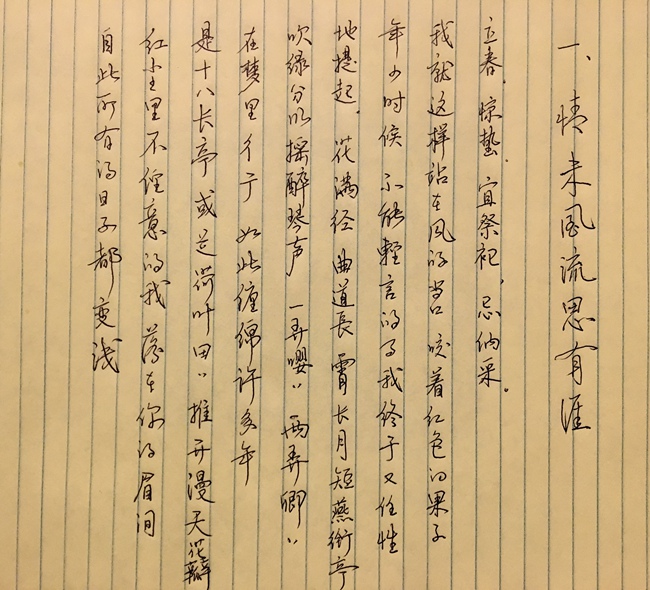 一、情未风流思有涯
立春.惊蛰.宜祭祀,忌纳采。
我就这样站在风的当口 咬着红色的果子
年少时候 不能轻言的 我终于又任性
地提起. 花满径 曲道长 霄长月短燕衔亭
吹绿分明摇醉琴声 一弄嘤〃 两弄卿〃
在梦里行于 如此缠绵许多年
是十八长亭 或是荷叶田〃 推开漫天花瓣
红尘里不经意的我 落在你的眉间
自此所有的日子都变浅